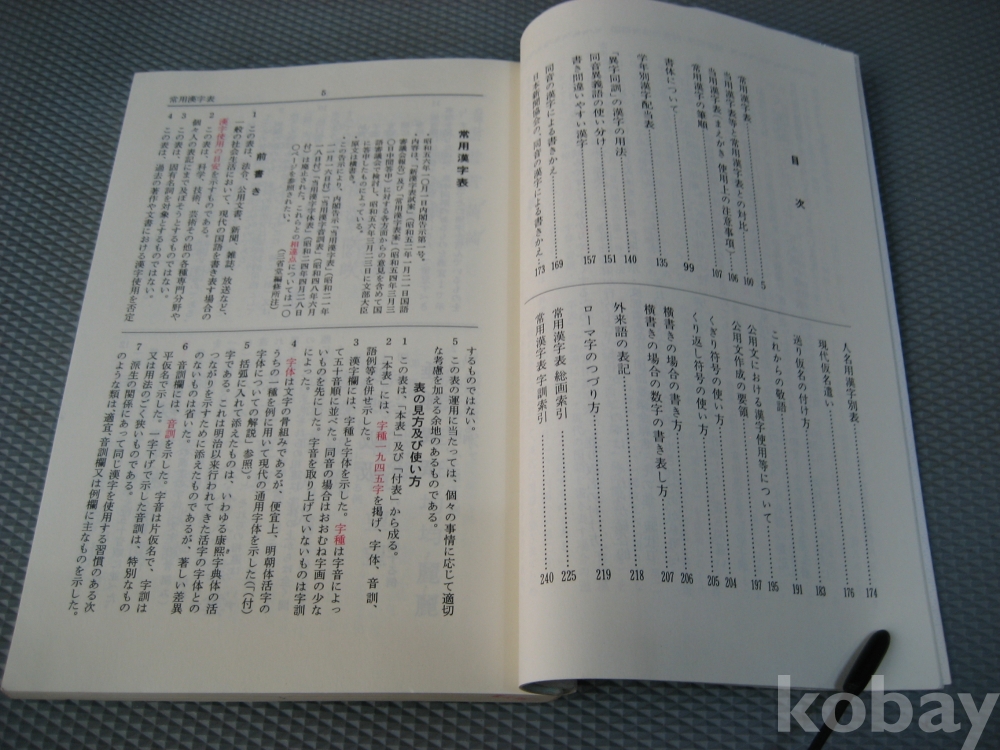 目　次
常用漢字表 5
当用漢字表等と常用漢字表との対比 100
当用漢字表〔まえがき 使用上の注意事項〕 106
常用漢字の筆順 107
書体について 99
学年別漢字配当表 135
「異字同訓」の漢字の用法 140
同音異義語の使い分け 151
書き間違いやすい漢字 157
同音の漢字による書きかえ 169
日本新聞協会の、「同音の漢字による書きかえ」 173
人名用漢字別表 174
現代仮名遣い 176
送り仮名の付け方 183
これからの敬語 191
公用文における漢字使用等について 195
公用文作成の要領 197
くぎり符号の使い方 204
くり返し符号の使い方 205
横書きの場合の書き方 206
横書きの場合の数字の書き表し方 207
外来語の表記 218
ローマ字のつづり方 219
常用漢字表 総画索引 225
常用漢字表 字訓索引 240
5
常用漢字表
常用漢字表
・昭和五六年一〇月一日内閣告示第一号。
・内容は、「新漢字表試案」(昭和五二年一月二一日国語
審議会報告)及び「常用漢字表案」(昭和五四年三月三
〇日中間答申)に対する各方面からの意見を含めて国
語審議会で検討し、昭和五六年三月二三日に文部大臣
に答申したものによっている。
・原文は横書き。
・この告示により、内閣告示「当用漢字表」(昭和二一年
一一月一六日付)「当用漢字音訓表」(昭和四八年六月
一八日付)「当用漢字字体表」(昭和二四年四月二八日
付)は廃止された。これらとの相違点については一〇
〇ページを参照されたい。　(三省堂編修所注)
前　書　き
1　この表は、法令、公用文書、新聞、雑誌、放送など、
一般の社会生活において、現代の国語を書き表す場合の
漢字使用の目安を示すものである。
2　この表は、科学、技術、芸術その他の各種専門分野や
個々人の表記にまで及ぼそうとするものではない。
3　この表は、固有名詞を対象とするものではない。
4　この表は、過去の著作や文書における漢字使用を否定
するものではない。
5　この表の運用に当たっては、個々の事情に応じて適切
な考慮を加える余地のあるものである。
表の見方及び使い方
1　この表は、「本表」及び「付表」から成る。
2　「本表」には、字種一九四五字を掲げ、字体、音訓、
語例等を併せ示した。
3　漢字欄には、字種と字体を示した。字種は字音によっ
て五十音順に並べた。同音の場合はおおむね字画の少な
いものを先にした。字音を取り上げていないものは字訓
によった。
4　字体は文字の骨組みであるが、便宜上、明朝体活字の
うちの一種を例に用いて現代の通用字体を示した(「(付)
字体についての解説」参照)。
5　括弧に入れて添えたものは、いわゆる康煕字典体の活
字である。これは明治以来行われてきた活字の字体との
つながりを示すために添えたものであるが、著しい差異
のないものは省いた。
6　音訓欄には、音訓を示した。字音は片仮名で、字訓は
平仮名で示した。一字下げで示した音訓は、特別なもの
又は用法のごく狭いものである。
7　派生の関係にあって同じ漢字を使用する習慣のある次
のような類は、適宜、音訓欄又は例欄に主なものを示した。
kobay